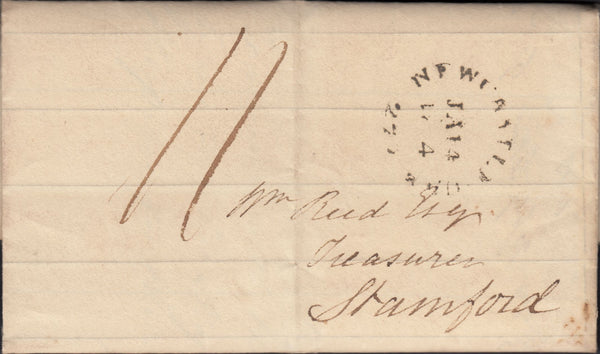 11
NEWCASTLE
JA 14
Wm Reed Esq
Treasurer
Stamford